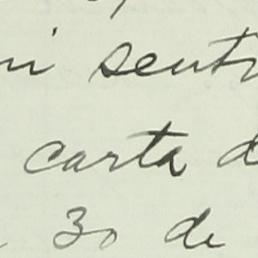 mi sent
carta d
30 de